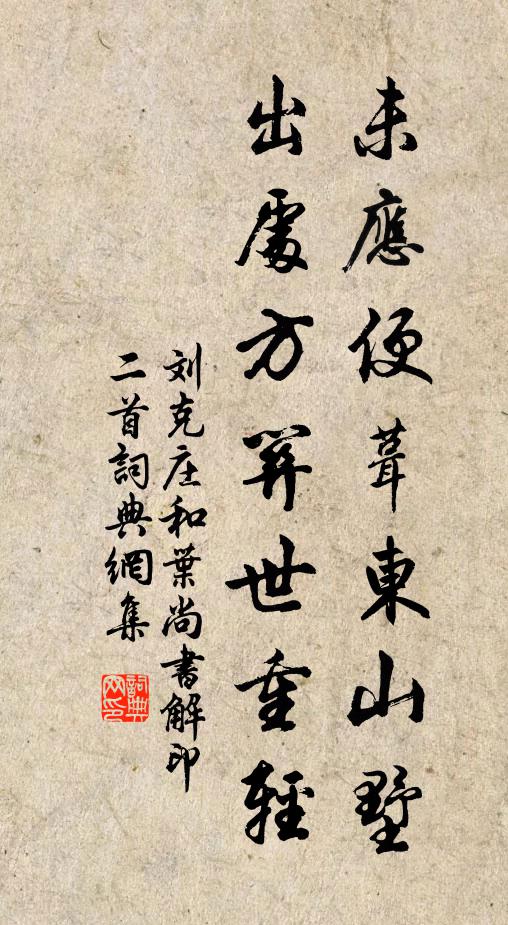 未應便葺東山墅
出處方關世重輕
刘克庄和葉尚書解印
二首詞典網集
詞典網印